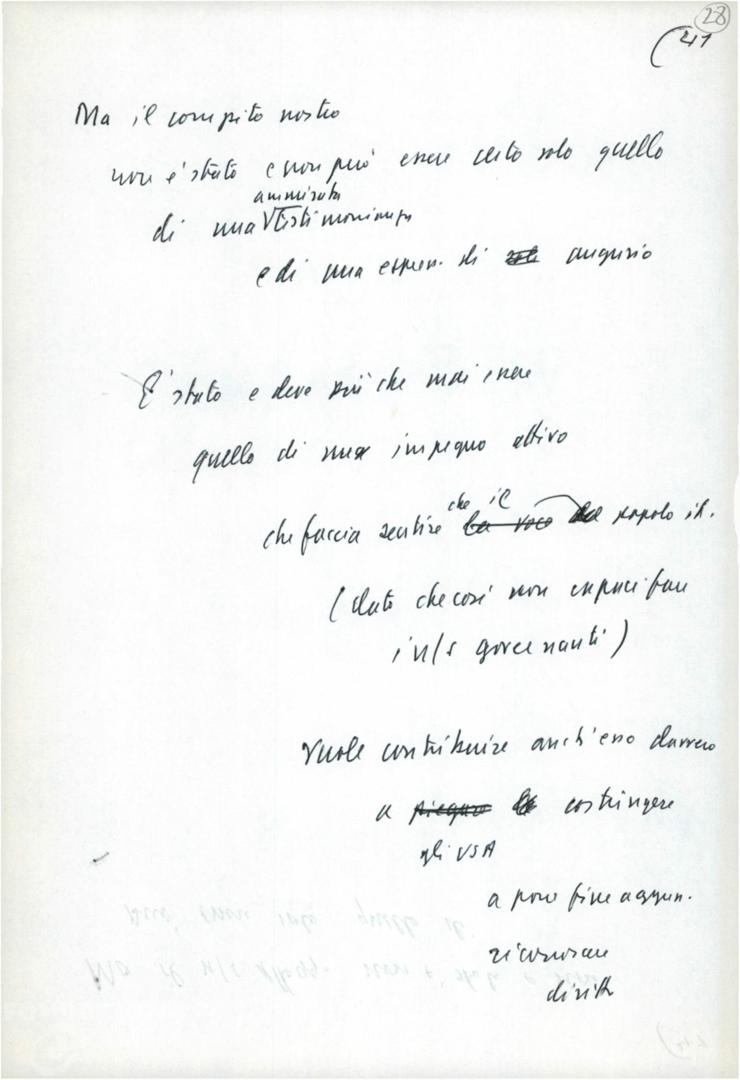 28
(41
Ma il compito nostro
non è stato e non può essere certo solo quello
ammirata
di una testimonianza
e di una espress. di augurio
E' stato e deve più che mai essere
quello di un impegno attivo
che faccia sentire che il popolo it.
(dato che così non sanno fare
i n/s governanti)
vuole contribuire anch'esso davvero
a piegare costringere
gli USA
a porre fine aggress.
riconoscere
diritti